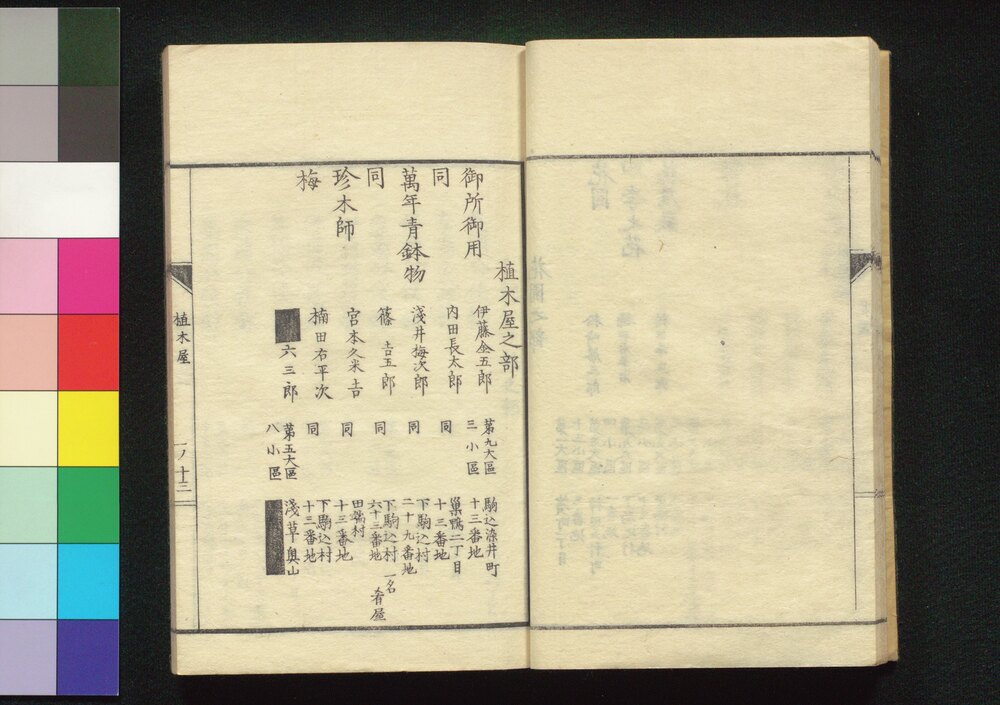 植木屋之部
御所御用 伊藤金五郎 第九大區三小區 駒込染井町十三番地
同 内田長太郎 同 巣鴨二丁目十三番地
萬年青鉢物 淺井梅次郎 同 下駒込村二十九番地
同 篠吉五郎 同 下駒込村六十三番地 一名肴屋
珍木師 宮本久米吉 同 田端村十三番地
楠田右平次 同 下駒込村十三番地
梅 六三郎 第五大區八小區 淺草奥山
植木屋
一ノ十三